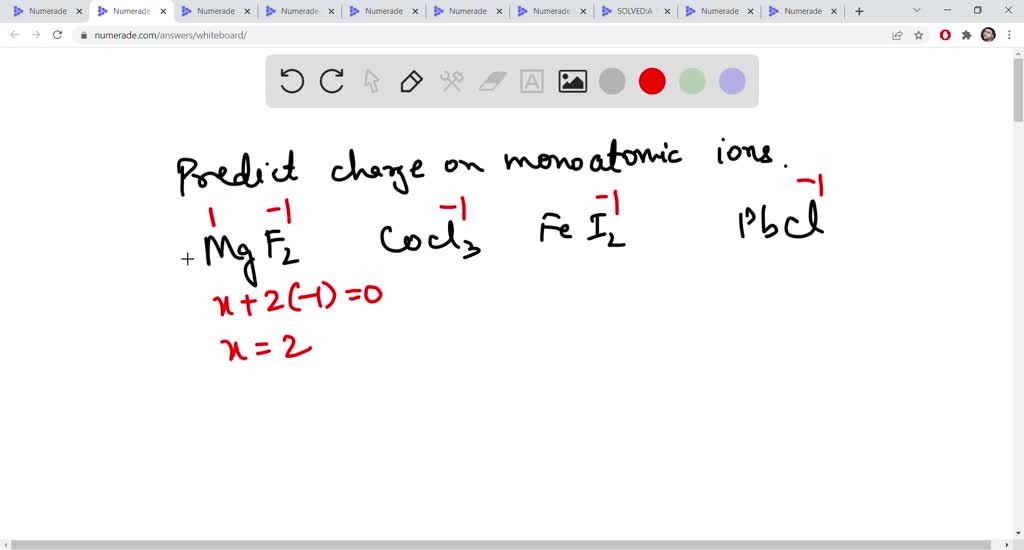 Numerade Numerade Numerade Numerade Numerade Numerade Numerade SOLVED:A Numerade Numerade
numerade.com/answers/whiteboard/
A
Predict charge on monoatomic ions.
1 -1 -1 -1 -1
MgF2 CoCl3 FeI2 PbCl
x+2(-1)=0
x=2